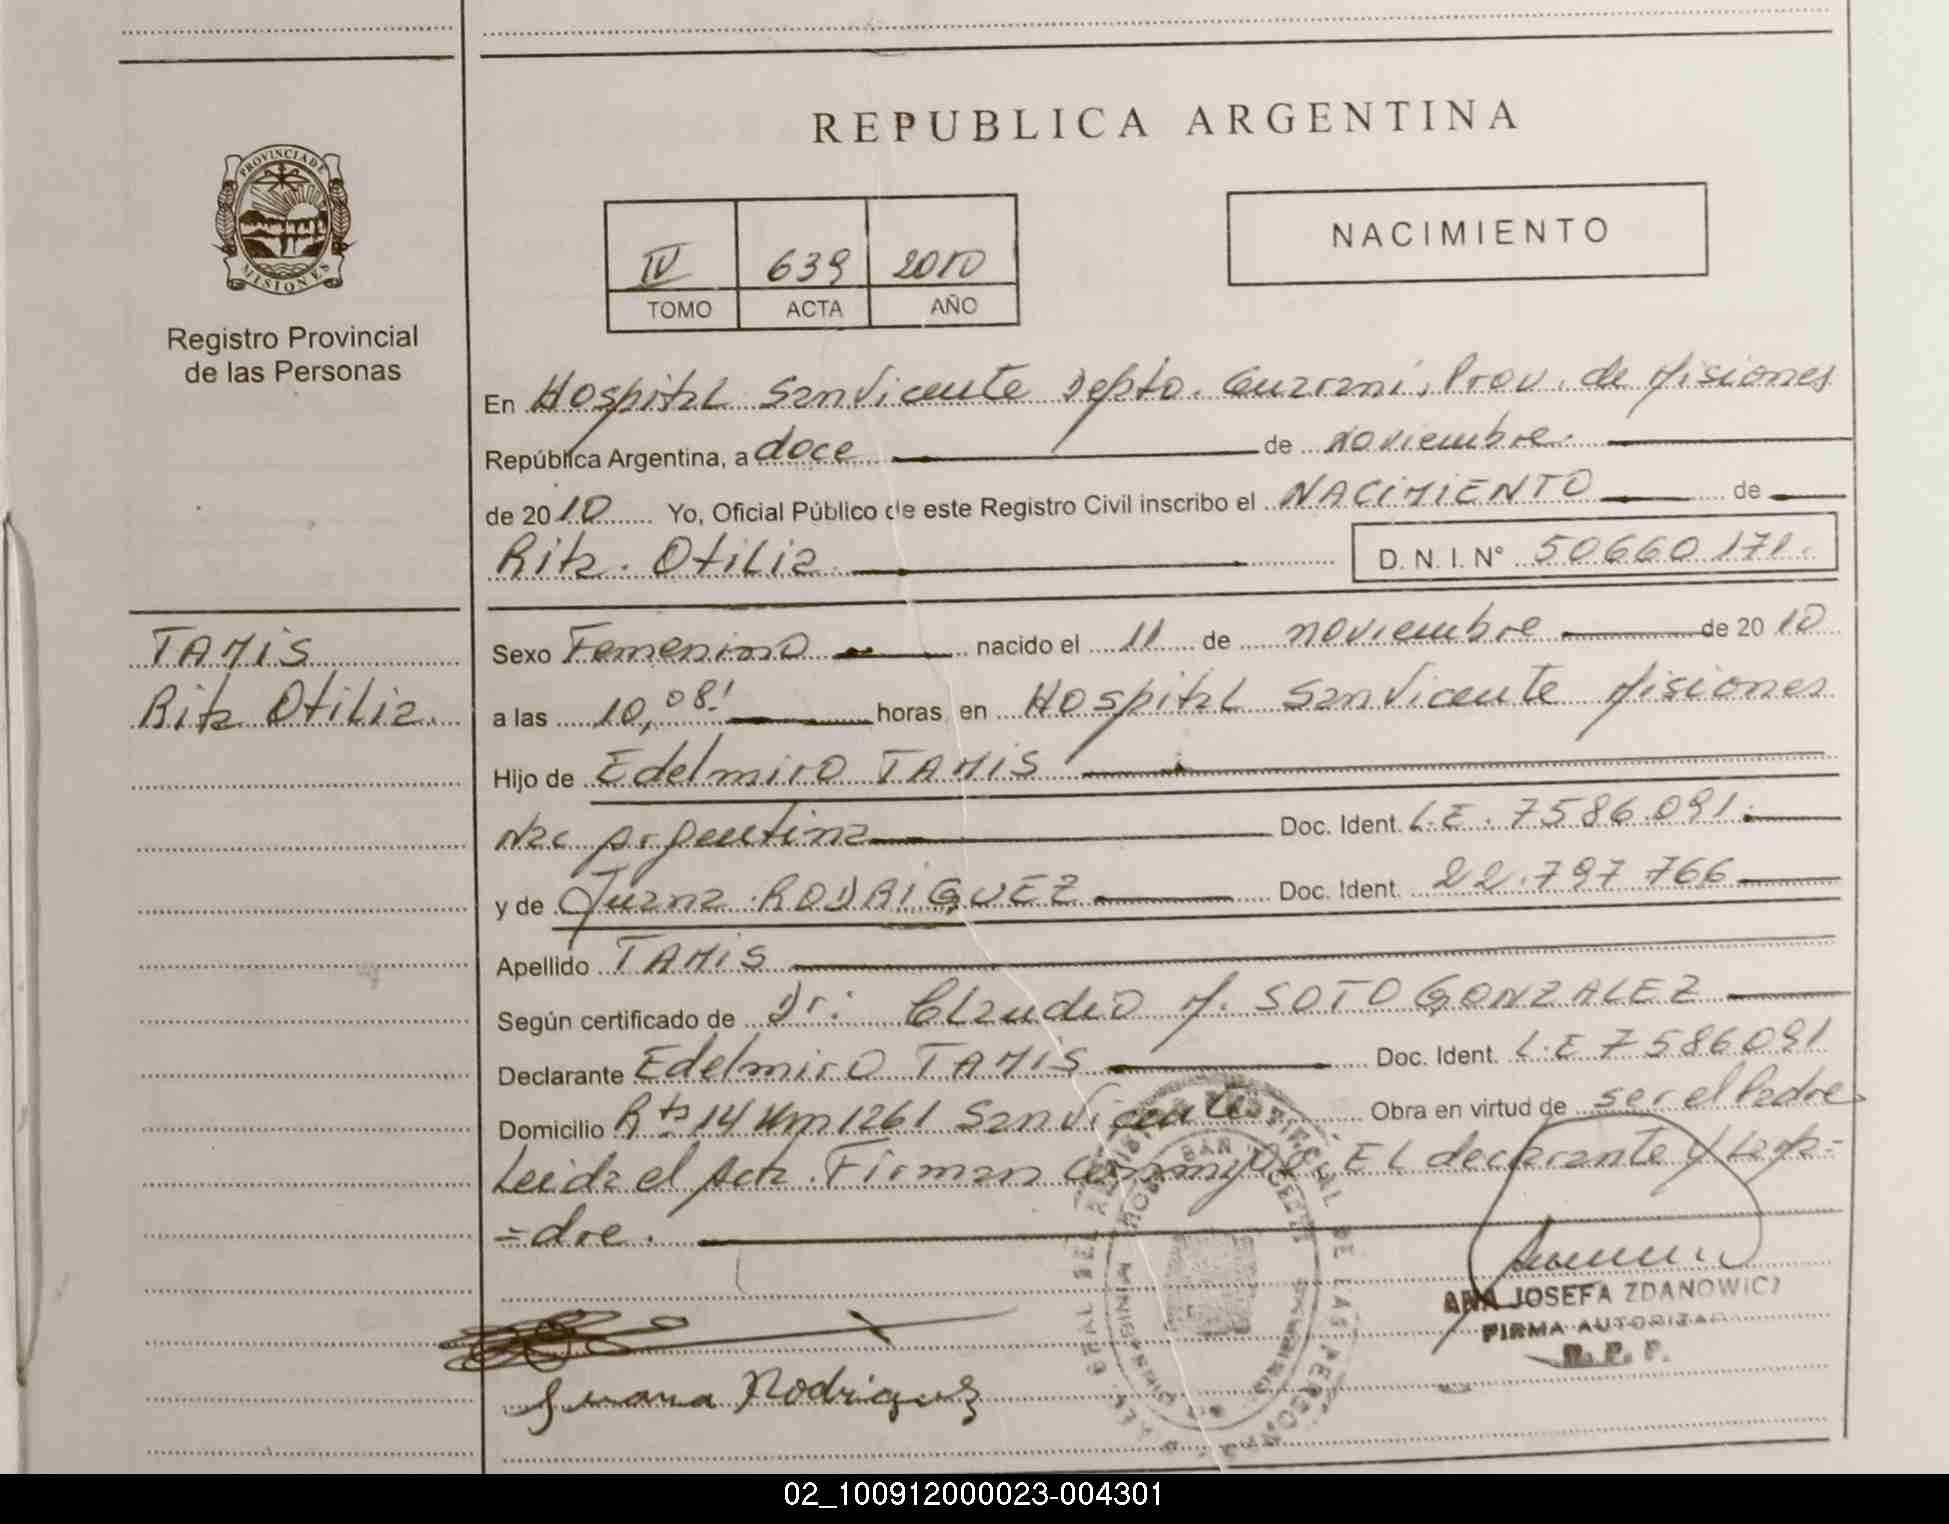 REPUBLICA ARGENTINA
PROVINCIA DE MISIONES
Registro Provincial
de las Personas
IV 639 2010
TOMO ACTA AÑO
NACIMIENTO
En Hospital San Vicente Depto. Guarani, Prov. de Misiones
República Argentina, a doce de noviembre.
de 2010 Yo, Oficial Público de este Registro Civil inscribo el NACIMIENTO de
Rita Otilia D. N. I. N° 50660171.
TAMIS
Rita Otilia.
Sexo Femenino nacido el 11 de noviembre de 2010
a las 10,08' horas en Hospital San Vicente Misiones
Hijo de Edelmiro TAMIS
Nac argentina Doc. Ident. L.E. 7586.091.
y de Juana RODRIGUEZ Doc. Ident. 22.797 766
Apellido TAMIS
Según certificado de Dr. Claudio M. SOTO GONZALEZ
Declarante Edelmiro TAMIS Doc. Ident. L.E 7586091
Domicilio Rta 14 Km 1261 San Vicente Obra en virtud de ser el Padre
Leida el Acta. Firman conmigo, El declarante y La ma=
=dre.
ANA JOSEFA ZDANOWICZ
FIRMA AUTORIZADA
R. P. P.
Juana Rodriguez
HOSP. SAN VICENTE
02_100912000023-004301